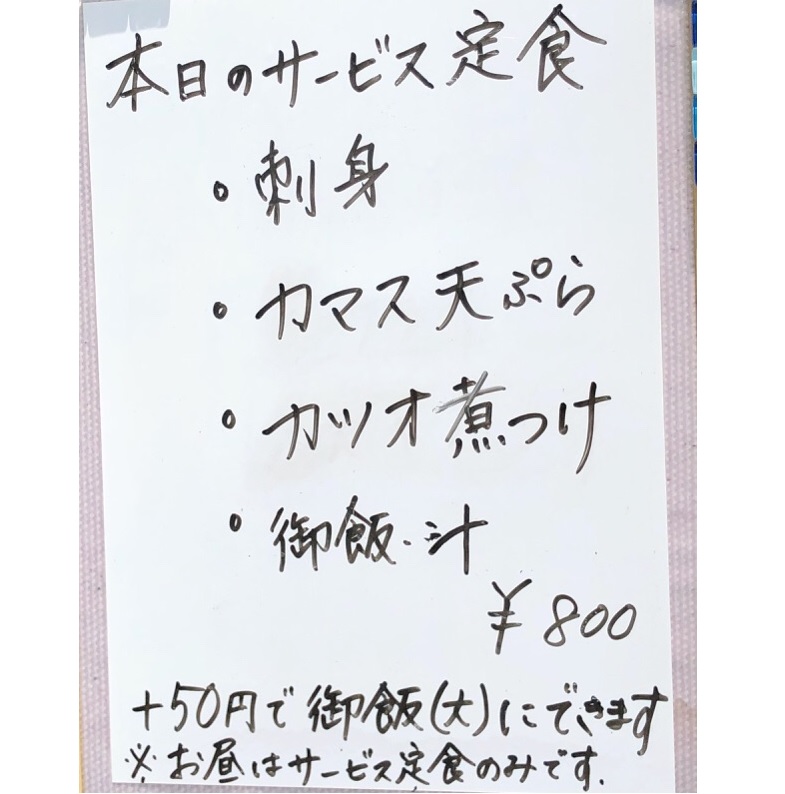 本日のサービス定食
・刺身
・カマス天ぷら
・カツオ煮つけ
・御飯・汁
¥800
+50円で御飯(大)にできます
※お昼はサービス定食のみです.